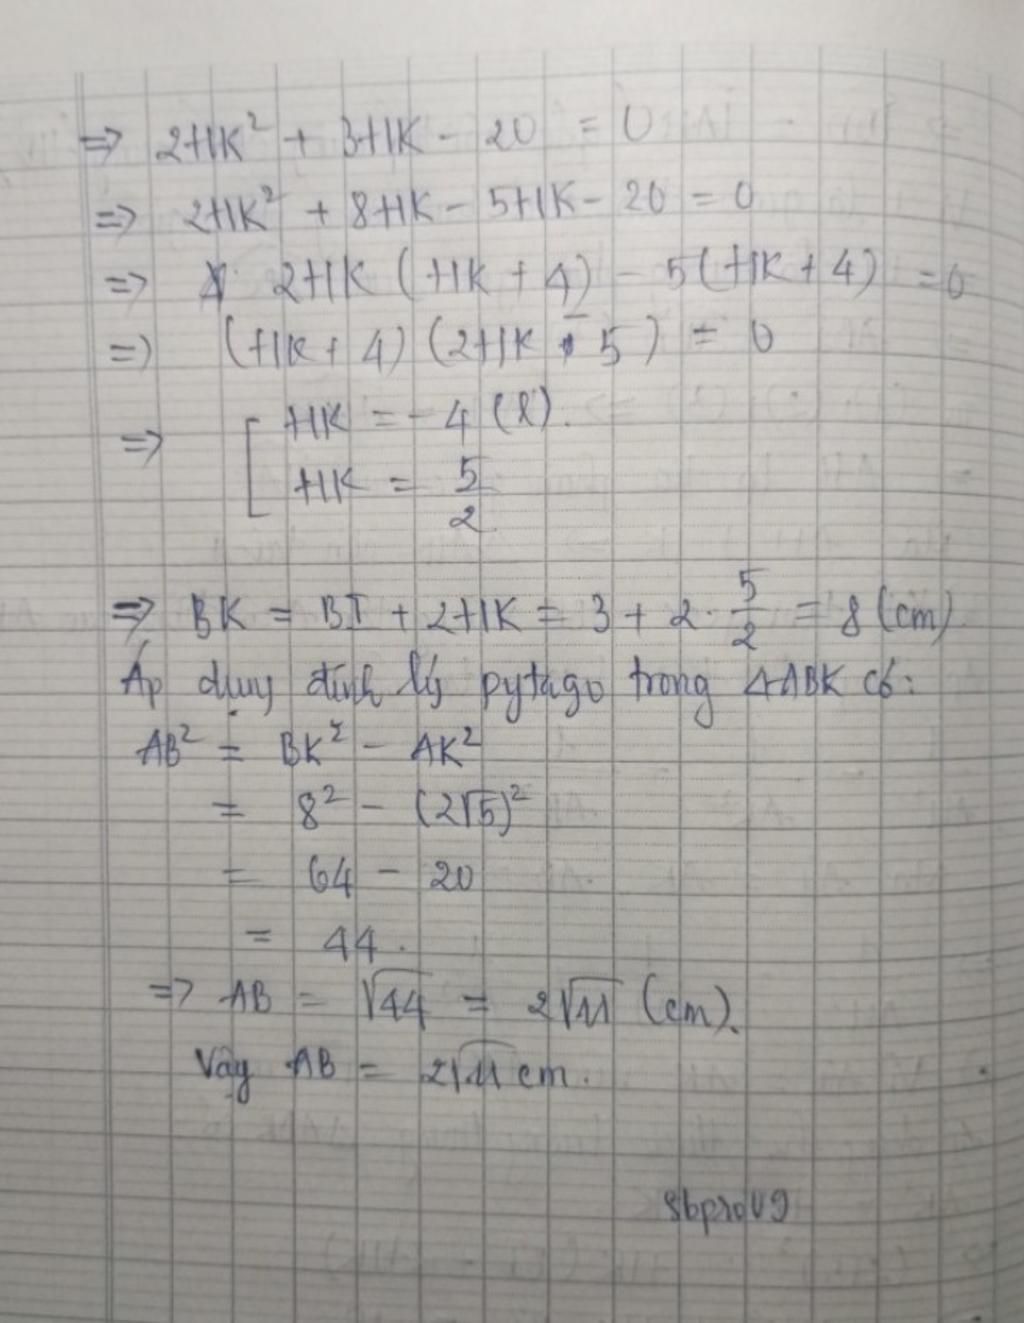 => 2HK² + 3HK - 20 = 0
=> 2HK² + 8HK - 5HK - 20 = 0
=> 2HK (HK + 4) - 5(HK + 4) = 0
=> (HK + 4) (2HK - 5) = 0
=> [ HK = -4 (l).
HK = 5/2
=> BK = BI + 2HK = 3 + 2 · 5/2 = 8 (cm)
Áp dụng định lý pytago trong ΔABK có:
AB² = BK² - AK²
= 8² - (2√5)²
= 64 - 20
= 44.
=> AB = √44 = 2√11 (cm).
Vậy AB = 2√11 cm.
sbprov9